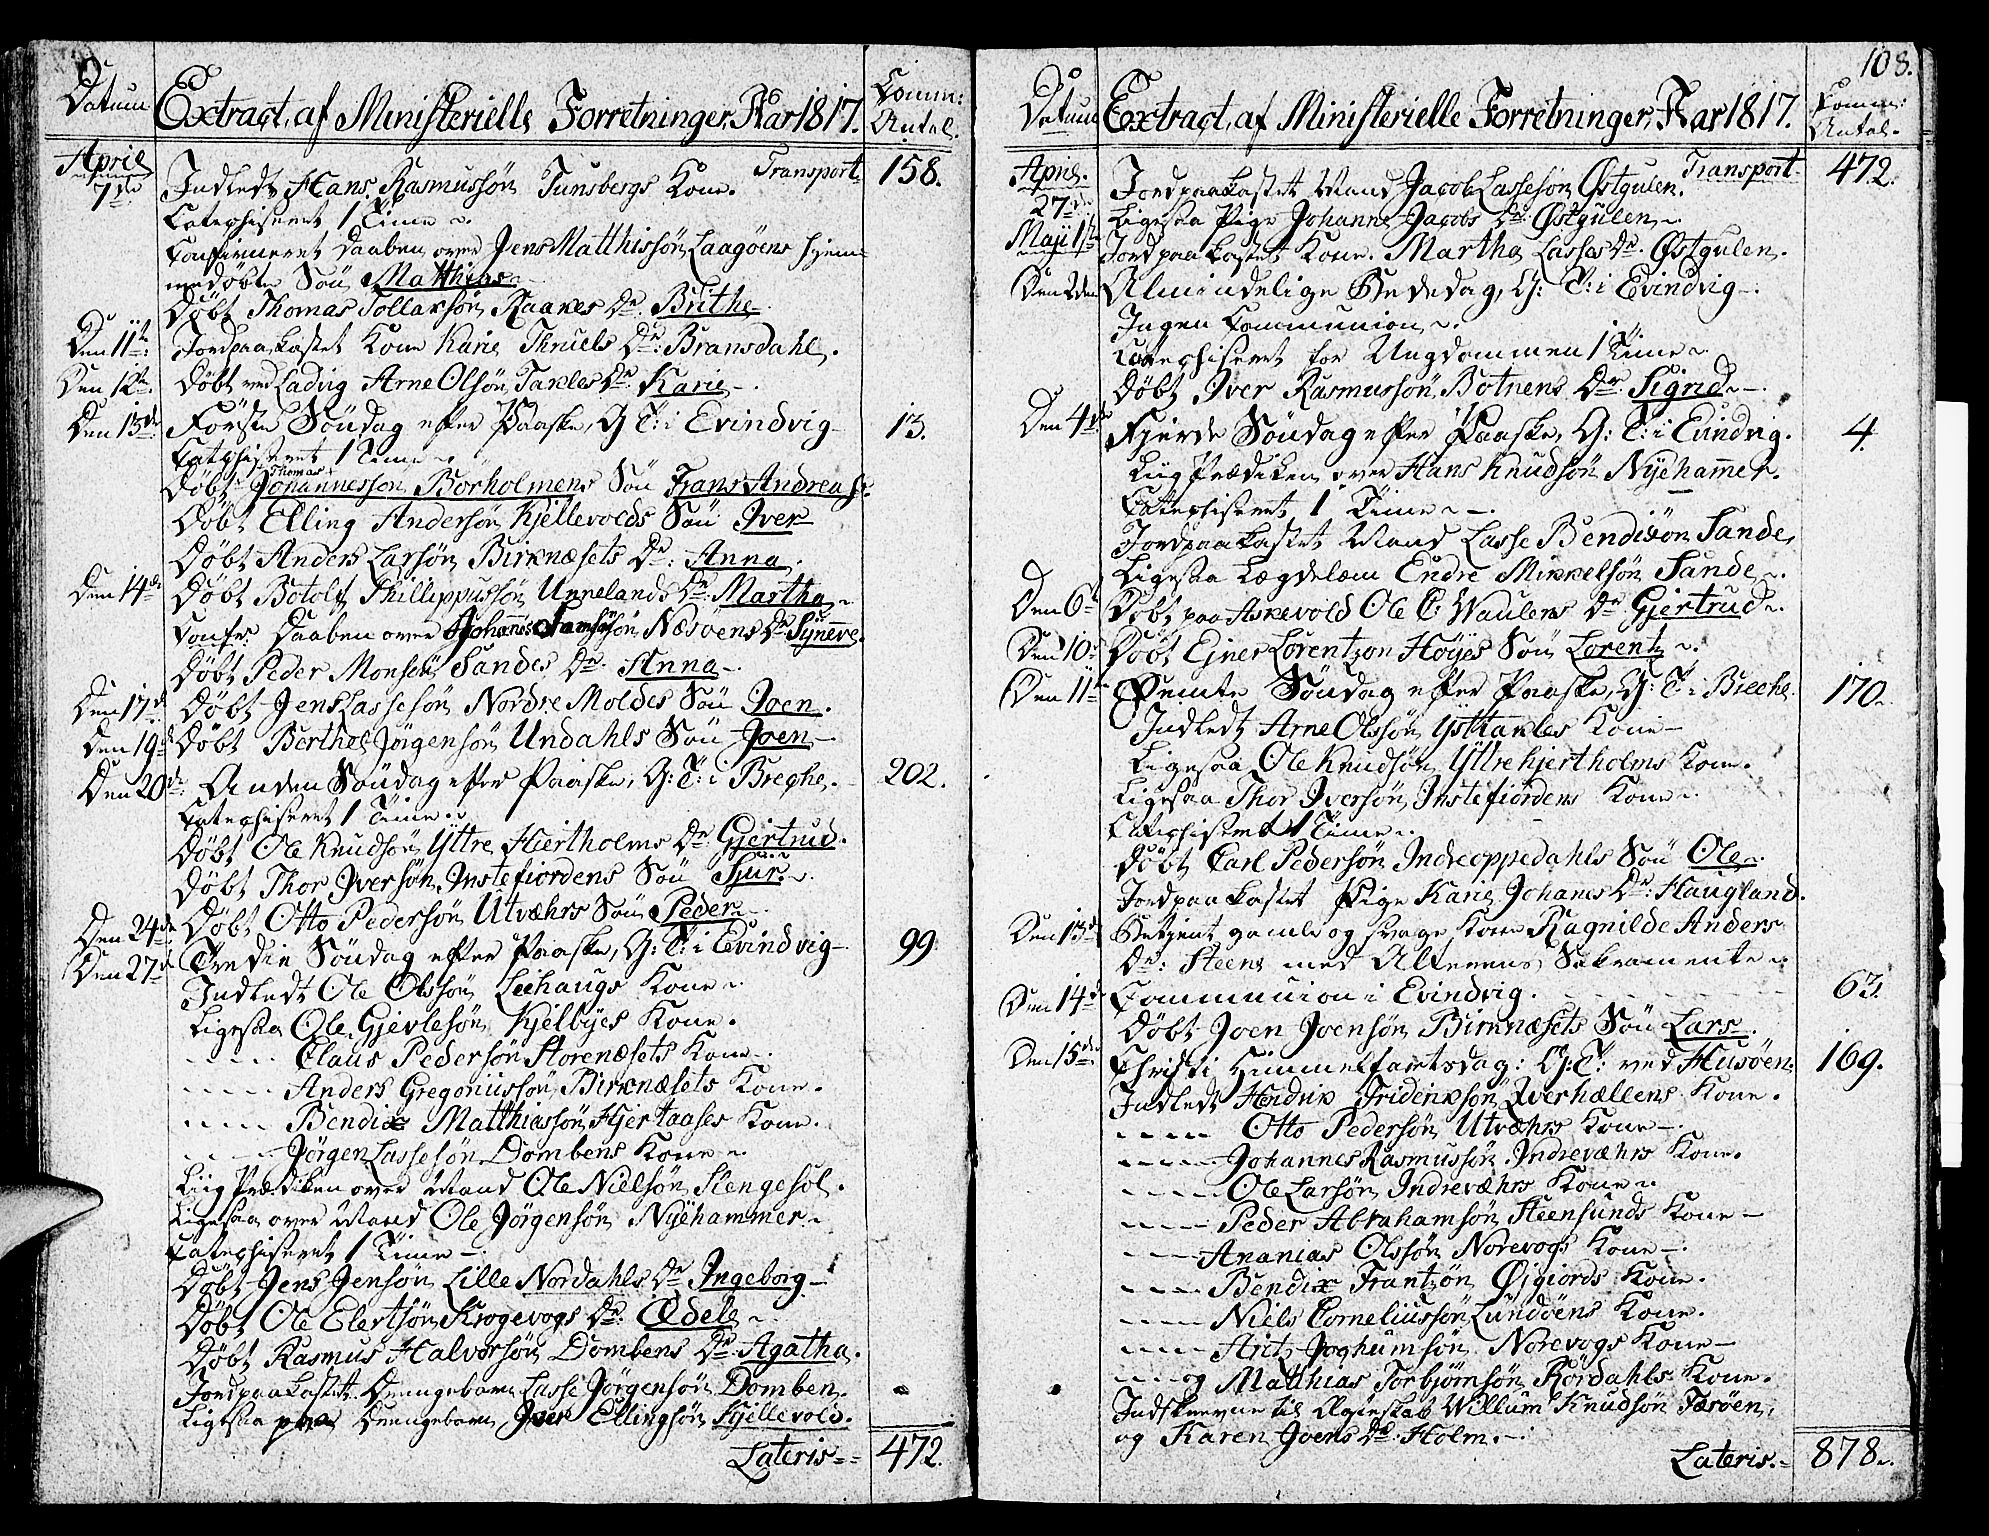 Datum
Extract, af Ministerielle Forretninger, Aar 1817.
Comm:
Antal.
April
7de
Indledt Hans Rasmussön Tunsbergs Kone. Transport
158.
Catechiseret 1 Time
Confirmeret Daaben over Jens Matthissön Laagöens hjem-
medöbte Sön Matthias
Döbt Thomas Tollaksön Raakes Dr. Brithe
Den 11te
Jordpaakastet Kone Karie Thruels Dr: Bransdahl.
Den 12te
Döbt ved Ladvig Arne Olsön Takles Dr Karie
Den 13de
Förste Söndag efter Paaske, G: T: i Evindvig
13.
Catechiseret 1 Time
Thomas
Döbt Johannessön Borholmens Sön Frans Andreas.
Döbt Elling Andersön Kjellevolds Sön Iver
Döbt Anders Larsön Birknæsets Dr: Anna.
Den 14de
Döbt Botolf Phillippussön Unnelands Dr: Martha
Confr. Daaben over Johannes Samsön Næsvens Dr Synneve.
Döbt Peder Monsön Sandes Dr. Anna
Den 17de
Döbt Jens Lassesön Nordre Moldes Sön Joen.
Den 19de
Döbt Berthel Jörgensön Undahls Sön Joen
Den 20de
Anden Söndag efter Paaske, G: T: i Breche.
202.
Catechiseret 1 Time
Döbt Ole Knudsön Yttre Hiertholms Dr Gjertrud.
Döbt Thor Iversön Instefiordens Sön Siur.
Den 24de
Döbt Otto Pedersön Utværs Sön Peder
Den 27de
Tredie Söndag efter Paaske, G: T: i Evindvig
99
Indledt Ole Olssön Leehaugs Kone
Ligesaa Ole Gjerlesön Kjelbyes Kone.
Claus Pedersön Storenæsets Kone
Anders Gregoriussön Birknæsets Kone.
Bendix Matthiassön Hjertaases Kone.
Jörgen Lassesön Dombens Kone
Liig Prædiken over Mand Ole Nielsön Stengesol.
Ligesaa over Mand Ole Jörgensön Nyehammer
Catechiseret 1 Time
Döbt Jens Jensön Lille Nordahls Dr Ingeborg
Döbt Ole Elertsön Krogevogs Dr: Ædel
Döbt Rasmus Halvorsön Dombens Dr. Agatha.
Jordpaakastet Drengebarn Lasse Jörgensön Domben.
Ligesaa paa Drengebarn Iver Ellingsön Kjellevold.
Lateris
472.
108.
Datum
Extract, af Ministerielle Forretninger, Aar 1817.
Comm:
Antal.
April.
27de
Jordpaakastet Mand Jacob Lassesön Östgulen. Transport
472.
Ligesaa Pige Johanne Jacobs Dr: Östgulen
Maji 1ste
Jordpaakastet Kone. Martha Lasses Dr. Östgulen.
Den 2den
Almindelige Bededag, G: T: i Evindvig
Ingen Communion.
Catechiseret for Ungdommen 1 Time
Döbt Iver Rasmussön Botnens Dr. Sigrid
Den 4de
Fjerde Söndag efter Paaske, G: T: i Evindvig.
4.
Liig Prædiken over Hans Knudsön Nyehammer.
Catechiseret 1 Time
Jordpaakastet Mand Lasse Bendixön Sande,
Ligesaa Lægdelem Endre Mikkelsön Sande
Den 6te
Döbt paa Askevold Ole C: Waulens Dr Gjertrud
Den 10de
Döbt Ejner Lorentzon Höyes Sön Lorentz
Den 11te
Femte Söndag efter Paaske, G: T: i Breche
170.
Indledt Arne Olssön Ystakles Kone
Ligesaa Ole Knudsön Yttre hjertholms Kone.
Ligesaa Thor Iversön Instefiordens Kone
Catechiseret 1 Time.
Döbt Carl Pedersön Indreoppedahls Sön Ole
Jordpaakastet Pige Karie Johannes Dr: Haugland.
Den 13de
Betjent gamle og svage Kone Ragnilde Anders
Dr: Steens med Alterens Sakramente
Den 14de
Communion i Evindvig.
63.
Döbt Joen Joensön Birknæsets Sön Lars.
Den 15de
Christi Himmelfartsdag: G: T: ved Husöen.
169.
Indledt Hendrik Friderichsön Qverhællens Kone.
Otto Pedersön Utværs Kone
Johannes Rasmussön Indreværs Kone.
Ole Larsön Indreværs Kone
Peder Abrahamsön Steensunds Kone
Ananias Olssön Norevogs Kone
Bendix Frantzön Öjgiords Kone.
Niels Corneliussön Lundöens Kone.
Aritz Joghumsön Norevogs Kone
og Matthias Torbjörnsön Rördahls Kone.
Indskrevne til Ægteskab Willum Knudsön Færöen,
og Karen Joens Dr. Holm.
Lateris.
878.